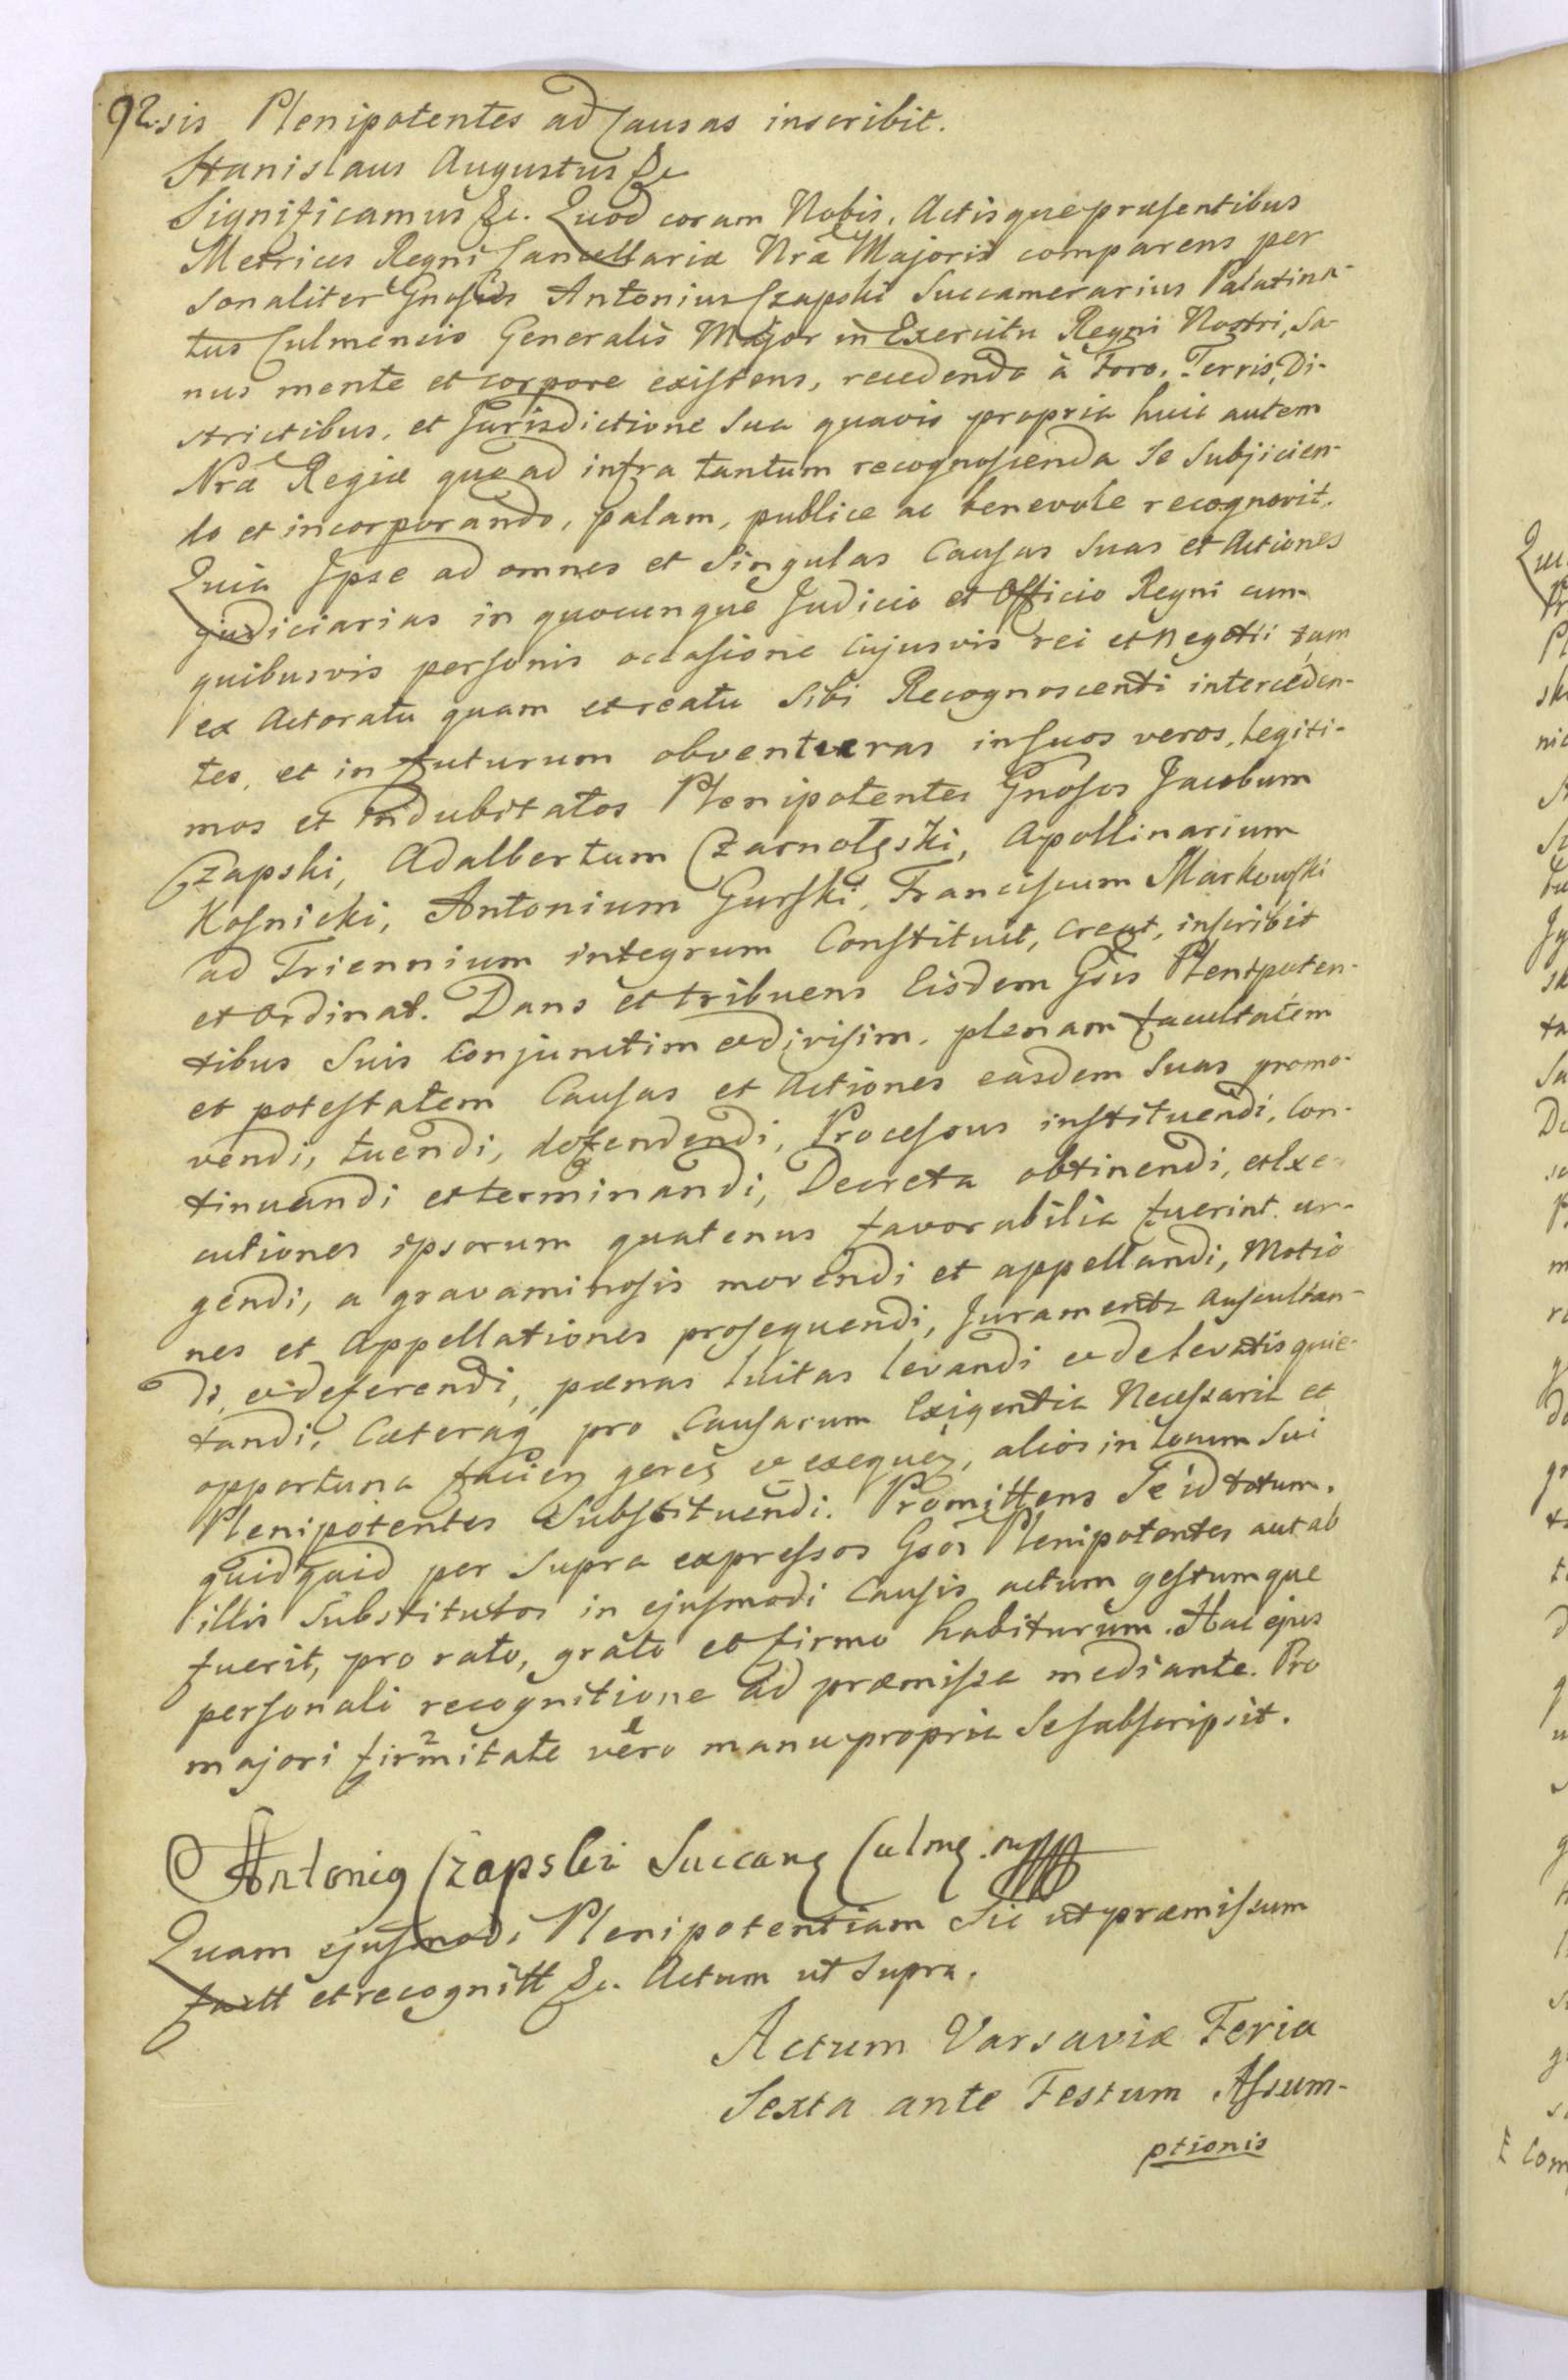 92. sis Plenipotentes ad Causas inscribit.
Stanislaus Augustus &c
Significamus &c. Quod coram Nobis, Actisque præsentibus
Metrices Regni Cancellariæ Nræ Majoris comparens per
sonaliter Gnosus Antonius Czapski Succamerarius Palatina-
tus Culmensis Generalis Major in Exercitu Regni Nostri, Sa-
nus mente et corpore existens, recedendo à Foro, Terris, Di-
strictibus, et Jurisdictione Sua quavis propria huic autem
Nræ Regiæ quo ad infra tantum recognoscenda Se Subjicien-
do et incorporando, palam, publice ac benevole recognovit.
Quia Ipse ad omnes et Singulas Causas Suas et Actiones
judiciarias in quocunque Judicio et Officio Regni cum
quibusvis personis occasione cujusvis rei et negotii tam
ex Actoratu quam et reatu Sibi Recognoscenti interceden-
tes, et in futurum obventuras in suos veros, legiti-
mos et indubitatos Plenipotentes Gnosos Jacobum
Czapski, Adalbertum Czarnołęski, Apollinarium
Kosnicki, Antonium Gurski, Franciscum Markowski
ad Triennium integrum Constituit, creat, inscribit
et ordinat. Dans et tribuens Eisdem Gsis Plenipoten-
tibus Suis conjunctim et divisim, plenam facultatem
et potestatem Causas et Actiones easdem Suas promo-
vendi, tuendi, defendendi, Processus instituendi, Con-
tinuandi et terminandi, Decreta obtinendi, et Exe-
cutiones ipsorum quatenus favorabilia fuerint ur-
gendi, a gravaminosis movendi et appellandi, Motio
nes et Appellationes prosequendi, Juramenta Auscultan-
di, et deferendi, pænas luitas levandi et de levatis quie-
tandi, Cæteraq pro Causarum Exigentia Necessaria et
opportuna facien geren et exequen, alios in locum Sui
Plenipotentes Substituendi. Promittens Se id totum,
quidquid per Supra expressos Gsos Plenipotentes aut ab
illis Substitutos in ejusmodi Causis actum gestumque
fuerit, pro rato, grato et firmo habiturum. Hac ejus
personali recognitione ad præmissa mediante. Pro
majori firmitate vero manu propria Se subscripsit.
Antonig Czapski Succam Culmen. mp
Quam ejusmodi Plenipotentiam Sic ut præmissum
factt et recognitt &c. Actum ut Supra.
Actum Varsaviæ Feria
Sexta ante Festum Assum-
ptionis